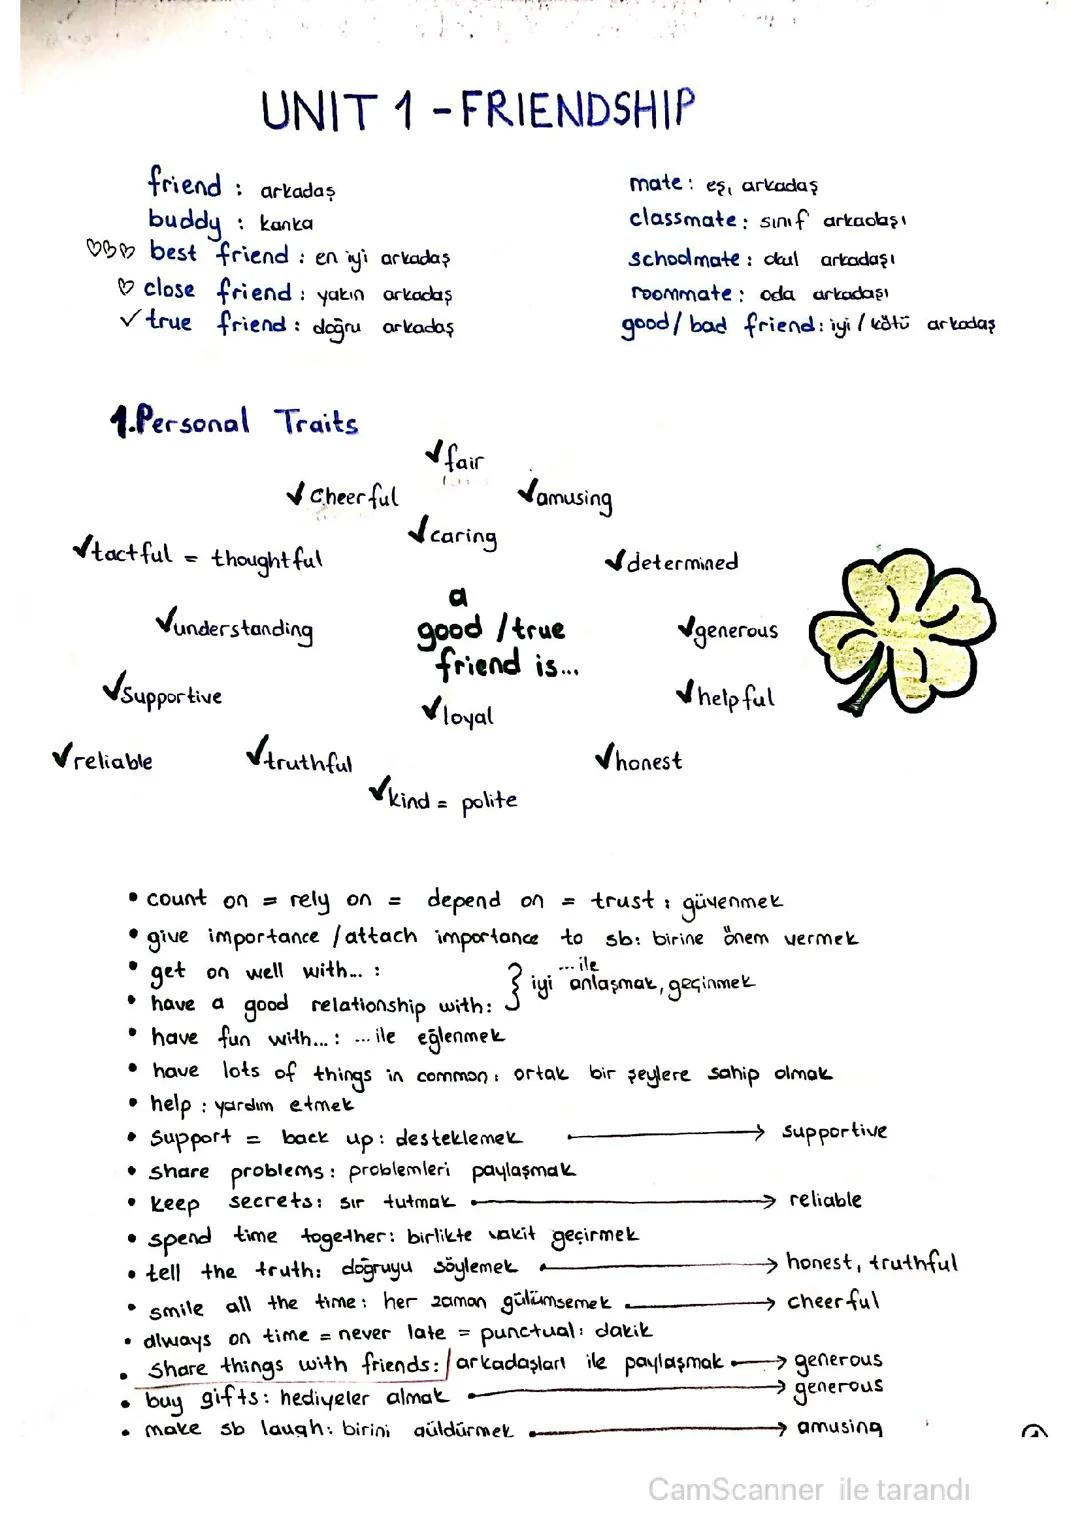 UNIT 1 - FRIENDSHIP
friend : arkadaş
buddy : kanka
best friend : en iyi arkadaş
close friend : yakın arkadaş
true friend : doğru arkadaş
mate : eş, arkadaş
classmate : sınıf arkadaşı
schoolmate : okul arkadaşı
roommate : oda arkadaşı
good / bad friend : iyi / kötü arkadaş
1.Personal Traits
✓fair
✓cheerful
✓amusing
✓caring
✓tactful = thoughtful
✓determined
a
good / true
friend is...
✓understanding
✓generous
✓supportive
✓helpful
✓loyal
✓reliable
✓truthful
✓honest
✓kind = polite
• count on = rely on = depend on = trust : güvenmek
• give importance / attach importance to sb: birine önem vermek
• get on well with... :
• have a good relationship with:
} ... ile
iyi anlaşmak, geçinmek
• have fun with... : ... ile eğlenmek
• have lots of things in common : ortak bir şeylere sahip olmak
• help : yardım etmek
• support = back up : desteklemek → supportive
• share problems : problemleri paylaşmak
• keep secrets : sır tutmak → reliable
• spend time together : birlikte vakit geçirmek
• tell the truth : doğruyu söylemek → honest, truthful
• smile all the time : her zaman gülümsemek → cheerful
• always on time = never late = punctual : dakik
• share things with friends : arkadaşları ile paylaşmak → generous
• buy gifts : hediyeler almak → generous
• make sb laugh : birini güldürmek → amusing
CamScanner ile tarandı